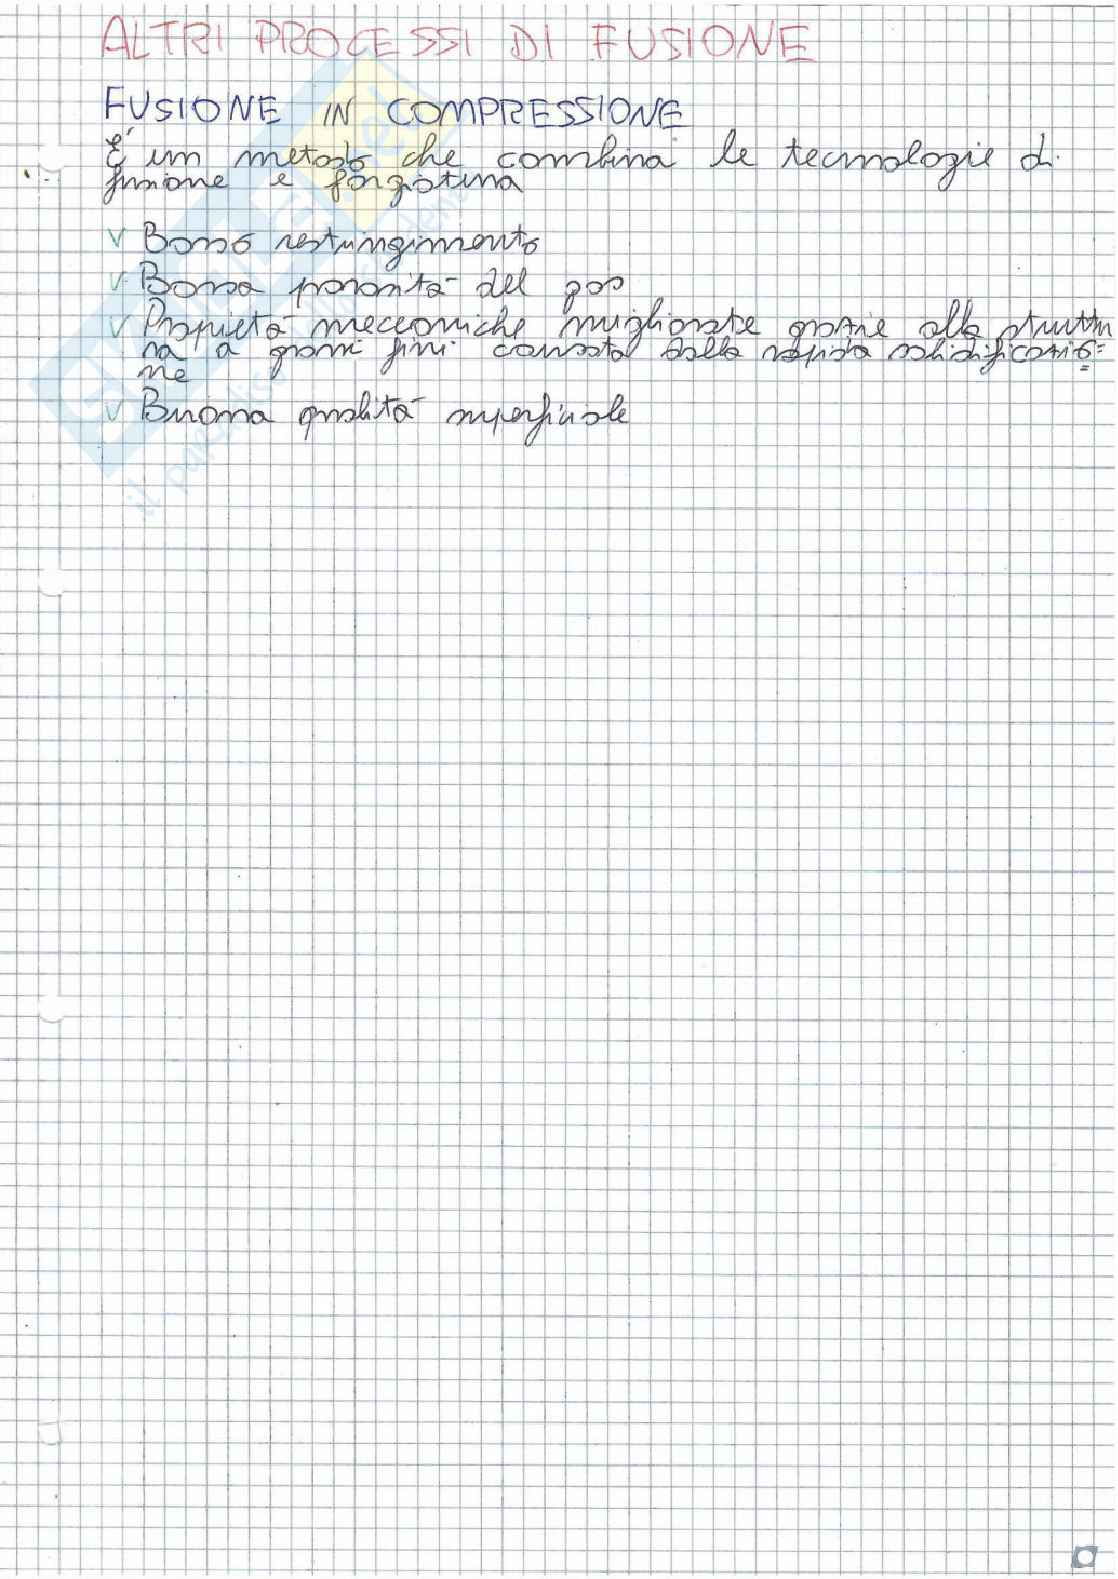 ALTRI PROCESSI DI FUSIONE
FUSIONE IN COMPRESSIONE
È un metodo che combina le tecnologie di
fusione e forgiatura
V Basso restringimento
V Bassa porosità del gas
V Proprietà meccaniche migliorate grazie alla struttu
ra a grani fini causata dalla rapida solidificazio=
ne
V Buona qualità superficiale